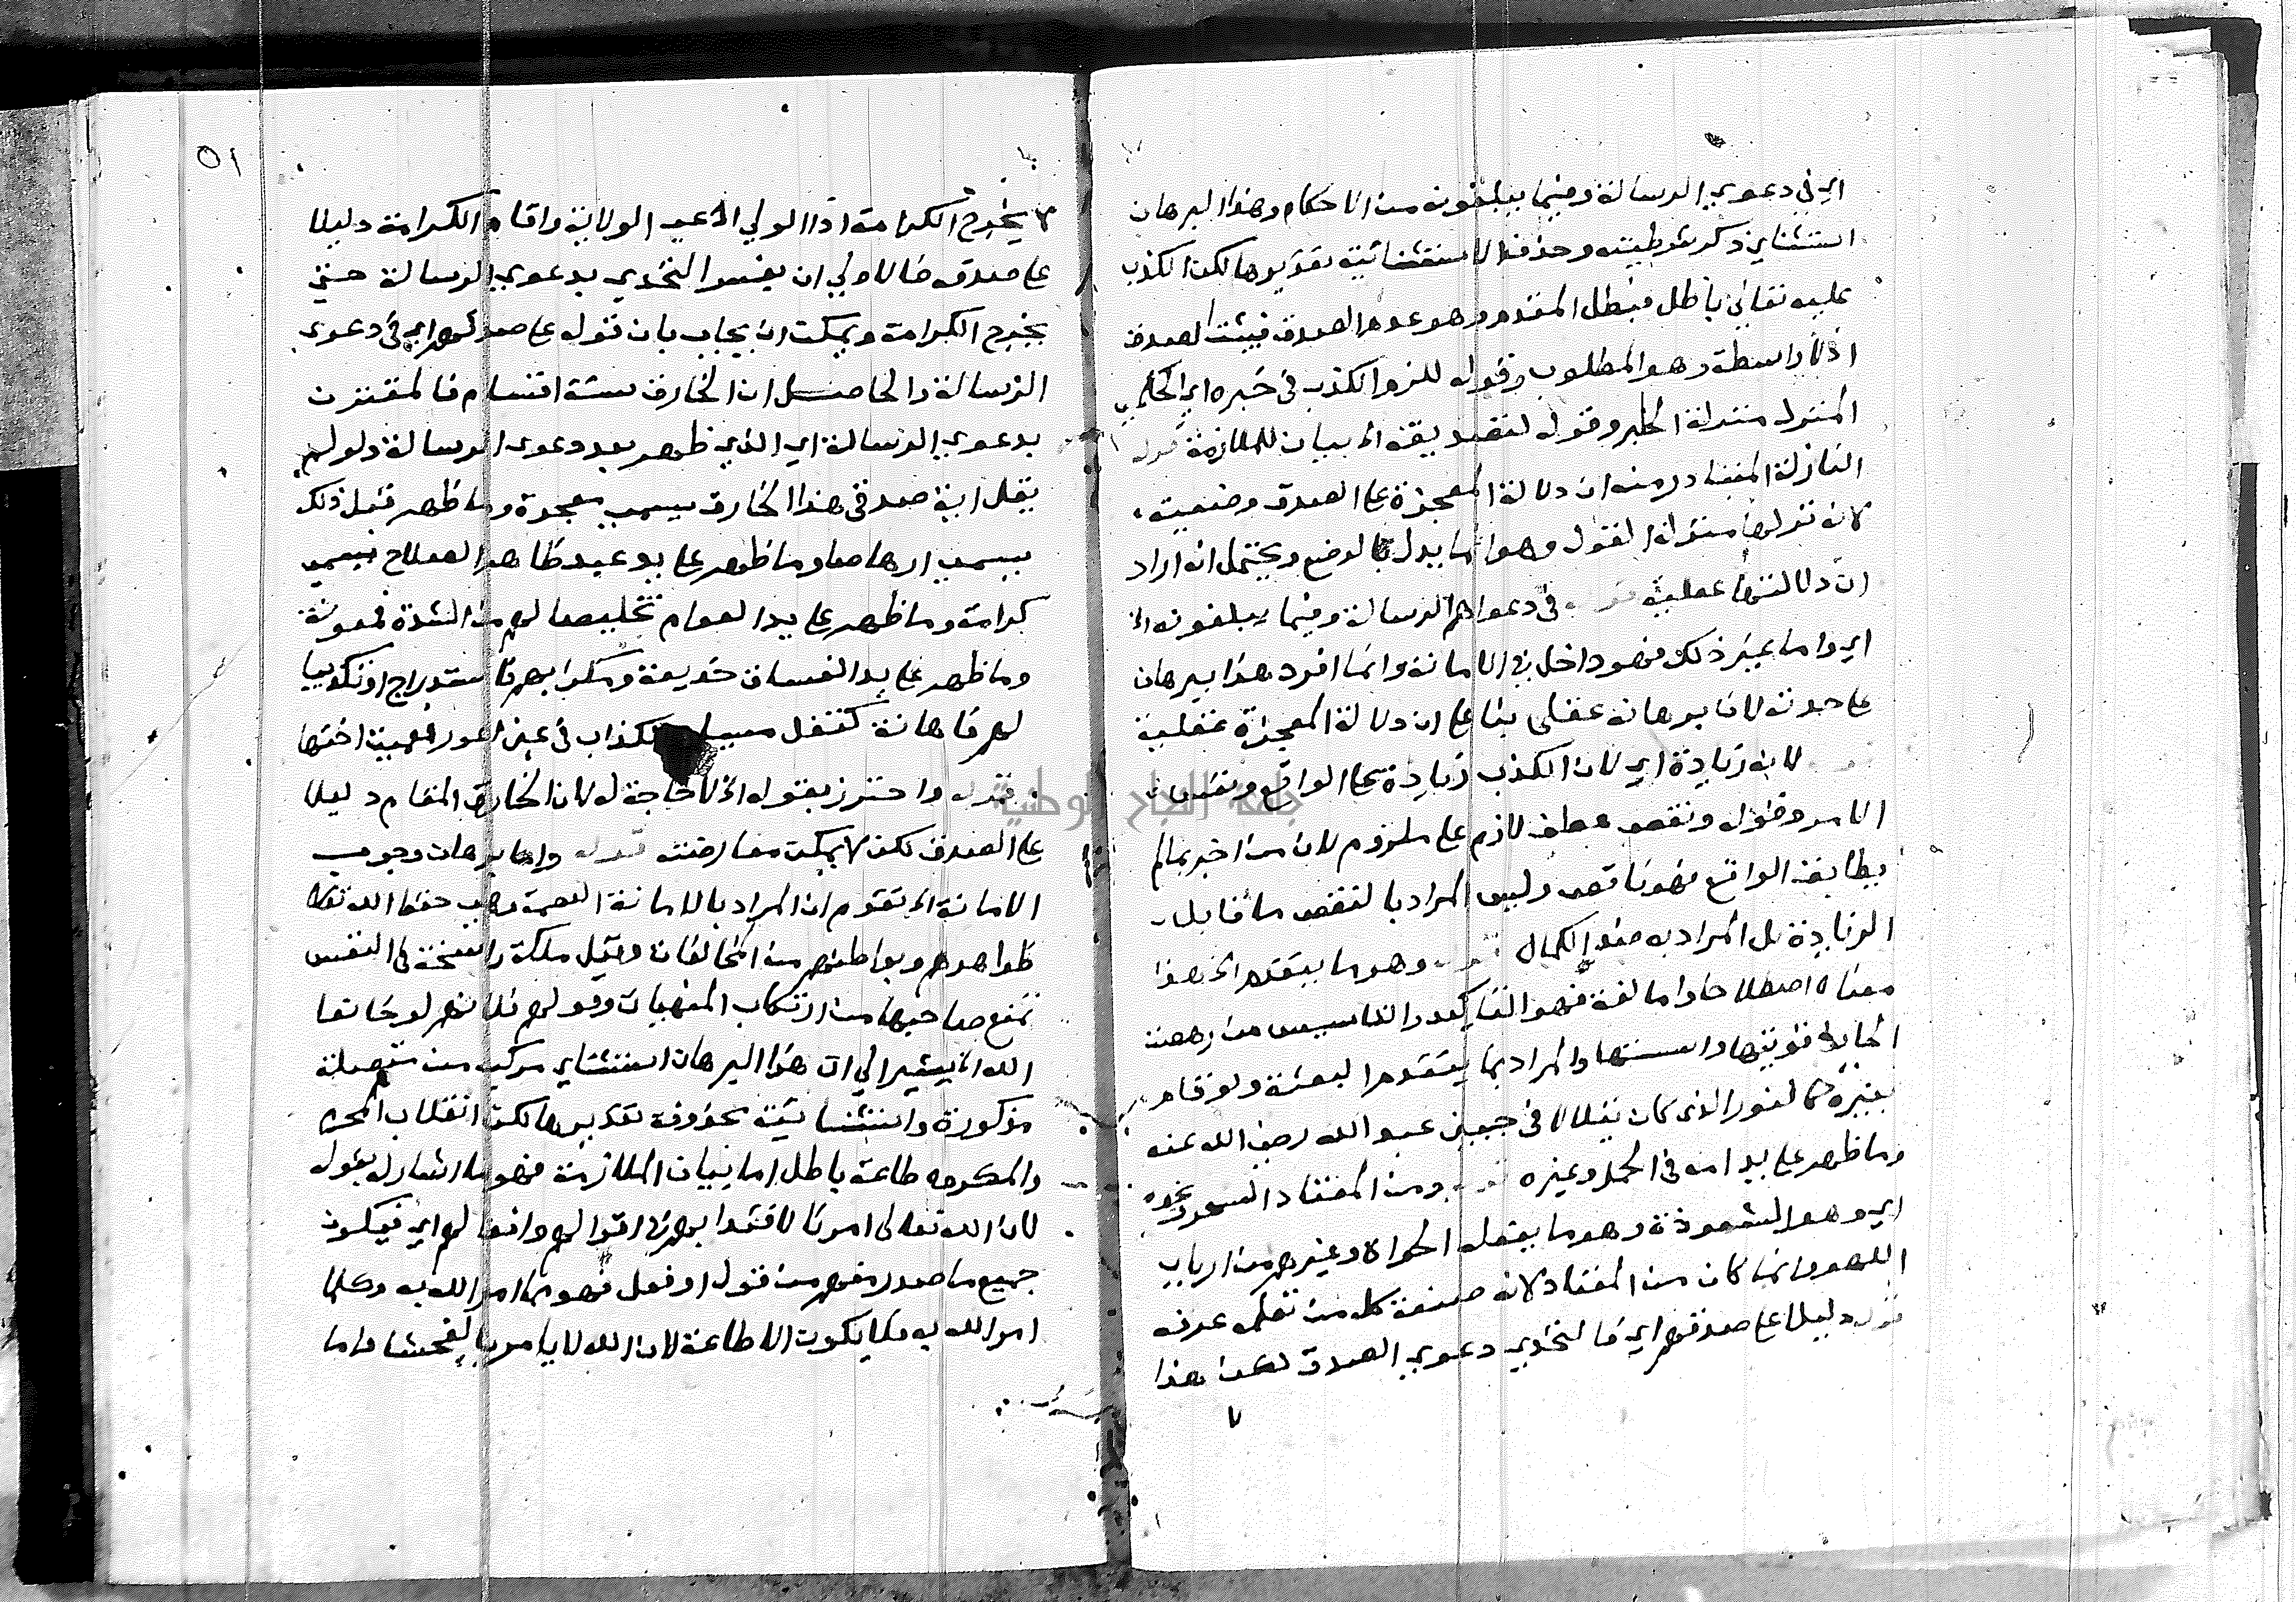 اي في دعوي الرسالة وفيما يبلغونه من الاحكام وهذا البرهان
استثناي ذكر شرطيته وحذف الاستثنائية تقديرها لكن الكذب
عليه تعالي باطل فبطل المقدم وهو عدم الصدق فيثبت الصدق
اذ لا واسطة وهو المطلوب وقوله للزم الكذب في خبره اي الحكمي
المنزل منزلة الخبر وقوله لتصديقه الخ بيان للملازمة قوله
النازلة المتبادر منه ان دلالة المعجزة علي الصدق وضعية
لانه نزلها منزلة القول وهو انما يدل بالوضع ويحتمل انه اراد
ان دلالتها عقلية قوله في دعواهم الرسالة وفيما يبلغونه الخ
اي واما غير ذلك فهو داخل في الامانة وانما افرد هذا ببرهان
علي حدته لان برهانه عقلي بنا علي ان دلالة المعجزة عقلية
لانه زيادة اي لان الكذب زيادة علي الواقع ونفس
الامر وقوله ونقص عطف لازم علي ملزوم لان من اخبر بما لم
يطابق الواقع فهو ناقص وليس المراد بالنقص ما قابل
الزيادة بل المراد به ضد الكمال قوله وهو ما يتقدم الخ هذا
معناه اصطلاحا واما لغة فهو التاكيد والتاسيس من رهصت
الحايط قويتها واسستها والمراد بما يتقدم البعثة ولو قام
بغيره كالنور الذي كان يتلالا في جبين عبد الله رضي الله عنه
وما ظهر علي يد امه في الحمل وغيره قوله ومن المعتاد السحر ونحوه
اي وهو الشعوذة وهو ما يفعله الحواة وغيرهم من ارباب
اللهو وانما كان من المعتاد لانه صنعة كل من تعلمه عرفه
قوله دليلا علي صدقهم اي فالتحدي دعوي الصدق لكن هذا
٥١
لا يخرج الكرامة اذا الولي ادعي الولاية واقام الكرامة دليلا
علي صدقه فالاولي ان يفسر التحدي بدعوي الرسالة حتي
يخرج الكرامة ويمكن ان يجاب بان قوله علي صدقهم اي في دعوي
الرسالة والحاصل ان الخارق ستة اقسام فالمقترن
بدعوي الرسالة اي الذي ظهر بعد دعوي الرسالة ولو لم
يقل اية صدقي هذا الخارق يسمي معجزة وما ظهر قبل ذلك
يسمي ارهاصا وما ظهر علي يد عبد ظاهر الصلاح يسمي
كرامة وما ظهر علي يد العوام تخليصا لهم من الشدة فمعونة
وما ظهر علي يد الفساق خديعة ومكرا بهم فاستدراج او تكذيبا
لهم فاهانة كتفل الكذاب في عين اعور اختها
قوله واحترز بقوله الخ لا حاجة له لان الخارق المقام دليلا
علي الصدق لكن لا يمكن معارضته قوله واما برهان وجوب
الامانة الخ تقدم ان المراد بالامانة العصمة وهي حفظ الله تعالي
ظواهرهم وبواطنهم من المخالفات وقيل ملكة راسخة في النفس
تمنع صاحبها من ارتكاب المنهيات وقوله فلانهم لو خانوا
الله الخ يشير الي ان هذا البرهان استثناي مركب من متصلة
مذكورة واستثنائية محذوفة تقديرها لكن انقلاب المحرم
والمكروه طاعة باطل اما بيان الملازمة فهو ما اشار له بقوله
لان الله تعالي امرنا لاقتدا بهم في اقوالهم وافعالهم اي فيكون
جميع ما صدر منهم من قول او فعل فهو مما امر الله به وكلما
امر الله به فلا يكون الا طاعة لان الله لا يامر بالفحشا واما
جامعة النجاح الوطنية